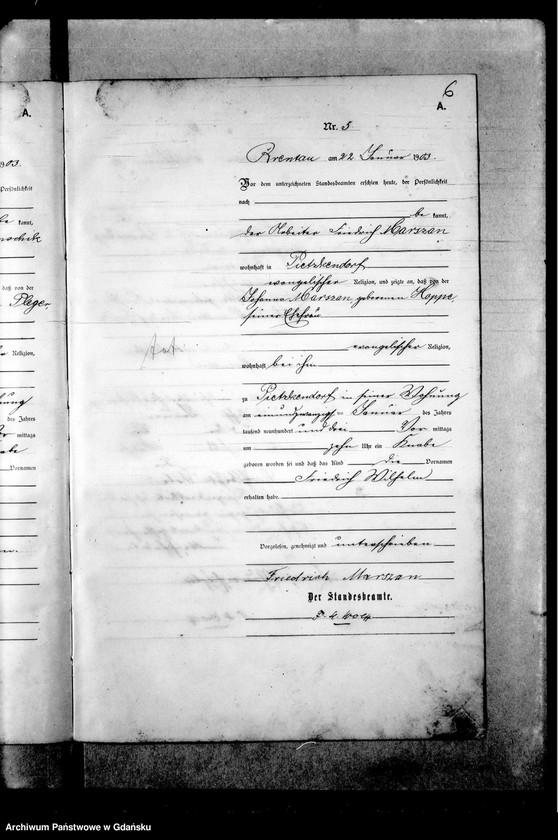 6
A.
Nr. 5.
Brentau am 22 Januar 1903.
Vor dem unterzeichneten Standesbeamten erschien heute, der Persönlichkeit
nach
be kannt,
der Arbeiter Friedrich Marszan
wohnhaft in Pietzkendorf
evangelischer Religion, und zeigte an, daß von der
Johanna Marszan geborenen Hoppe,
seiner Ehefrau
evangelischer Religion,
wohnhaft bei ihm
zu Pietzkendorf in seiner Wohnung
am einundzwanzigsten Januar des Jahres
tausend neunhundert und drei Vor mittags
um zehn Uhr ein Knabe
geboren worden sei und daß das Kind die Vornamen
Friedrich Wilhelm
erhalten habe.
Vorgelesen, genehmigt und unterschrieben
Friedrich Marszan
Der Standesbeamte.
A.
1903.
Persönlichkeit
kannt,
daß von der
Pleger,
Religion,
des Jahres
mittags
Vornamen
Archiwum Państwowe w Gdańsku